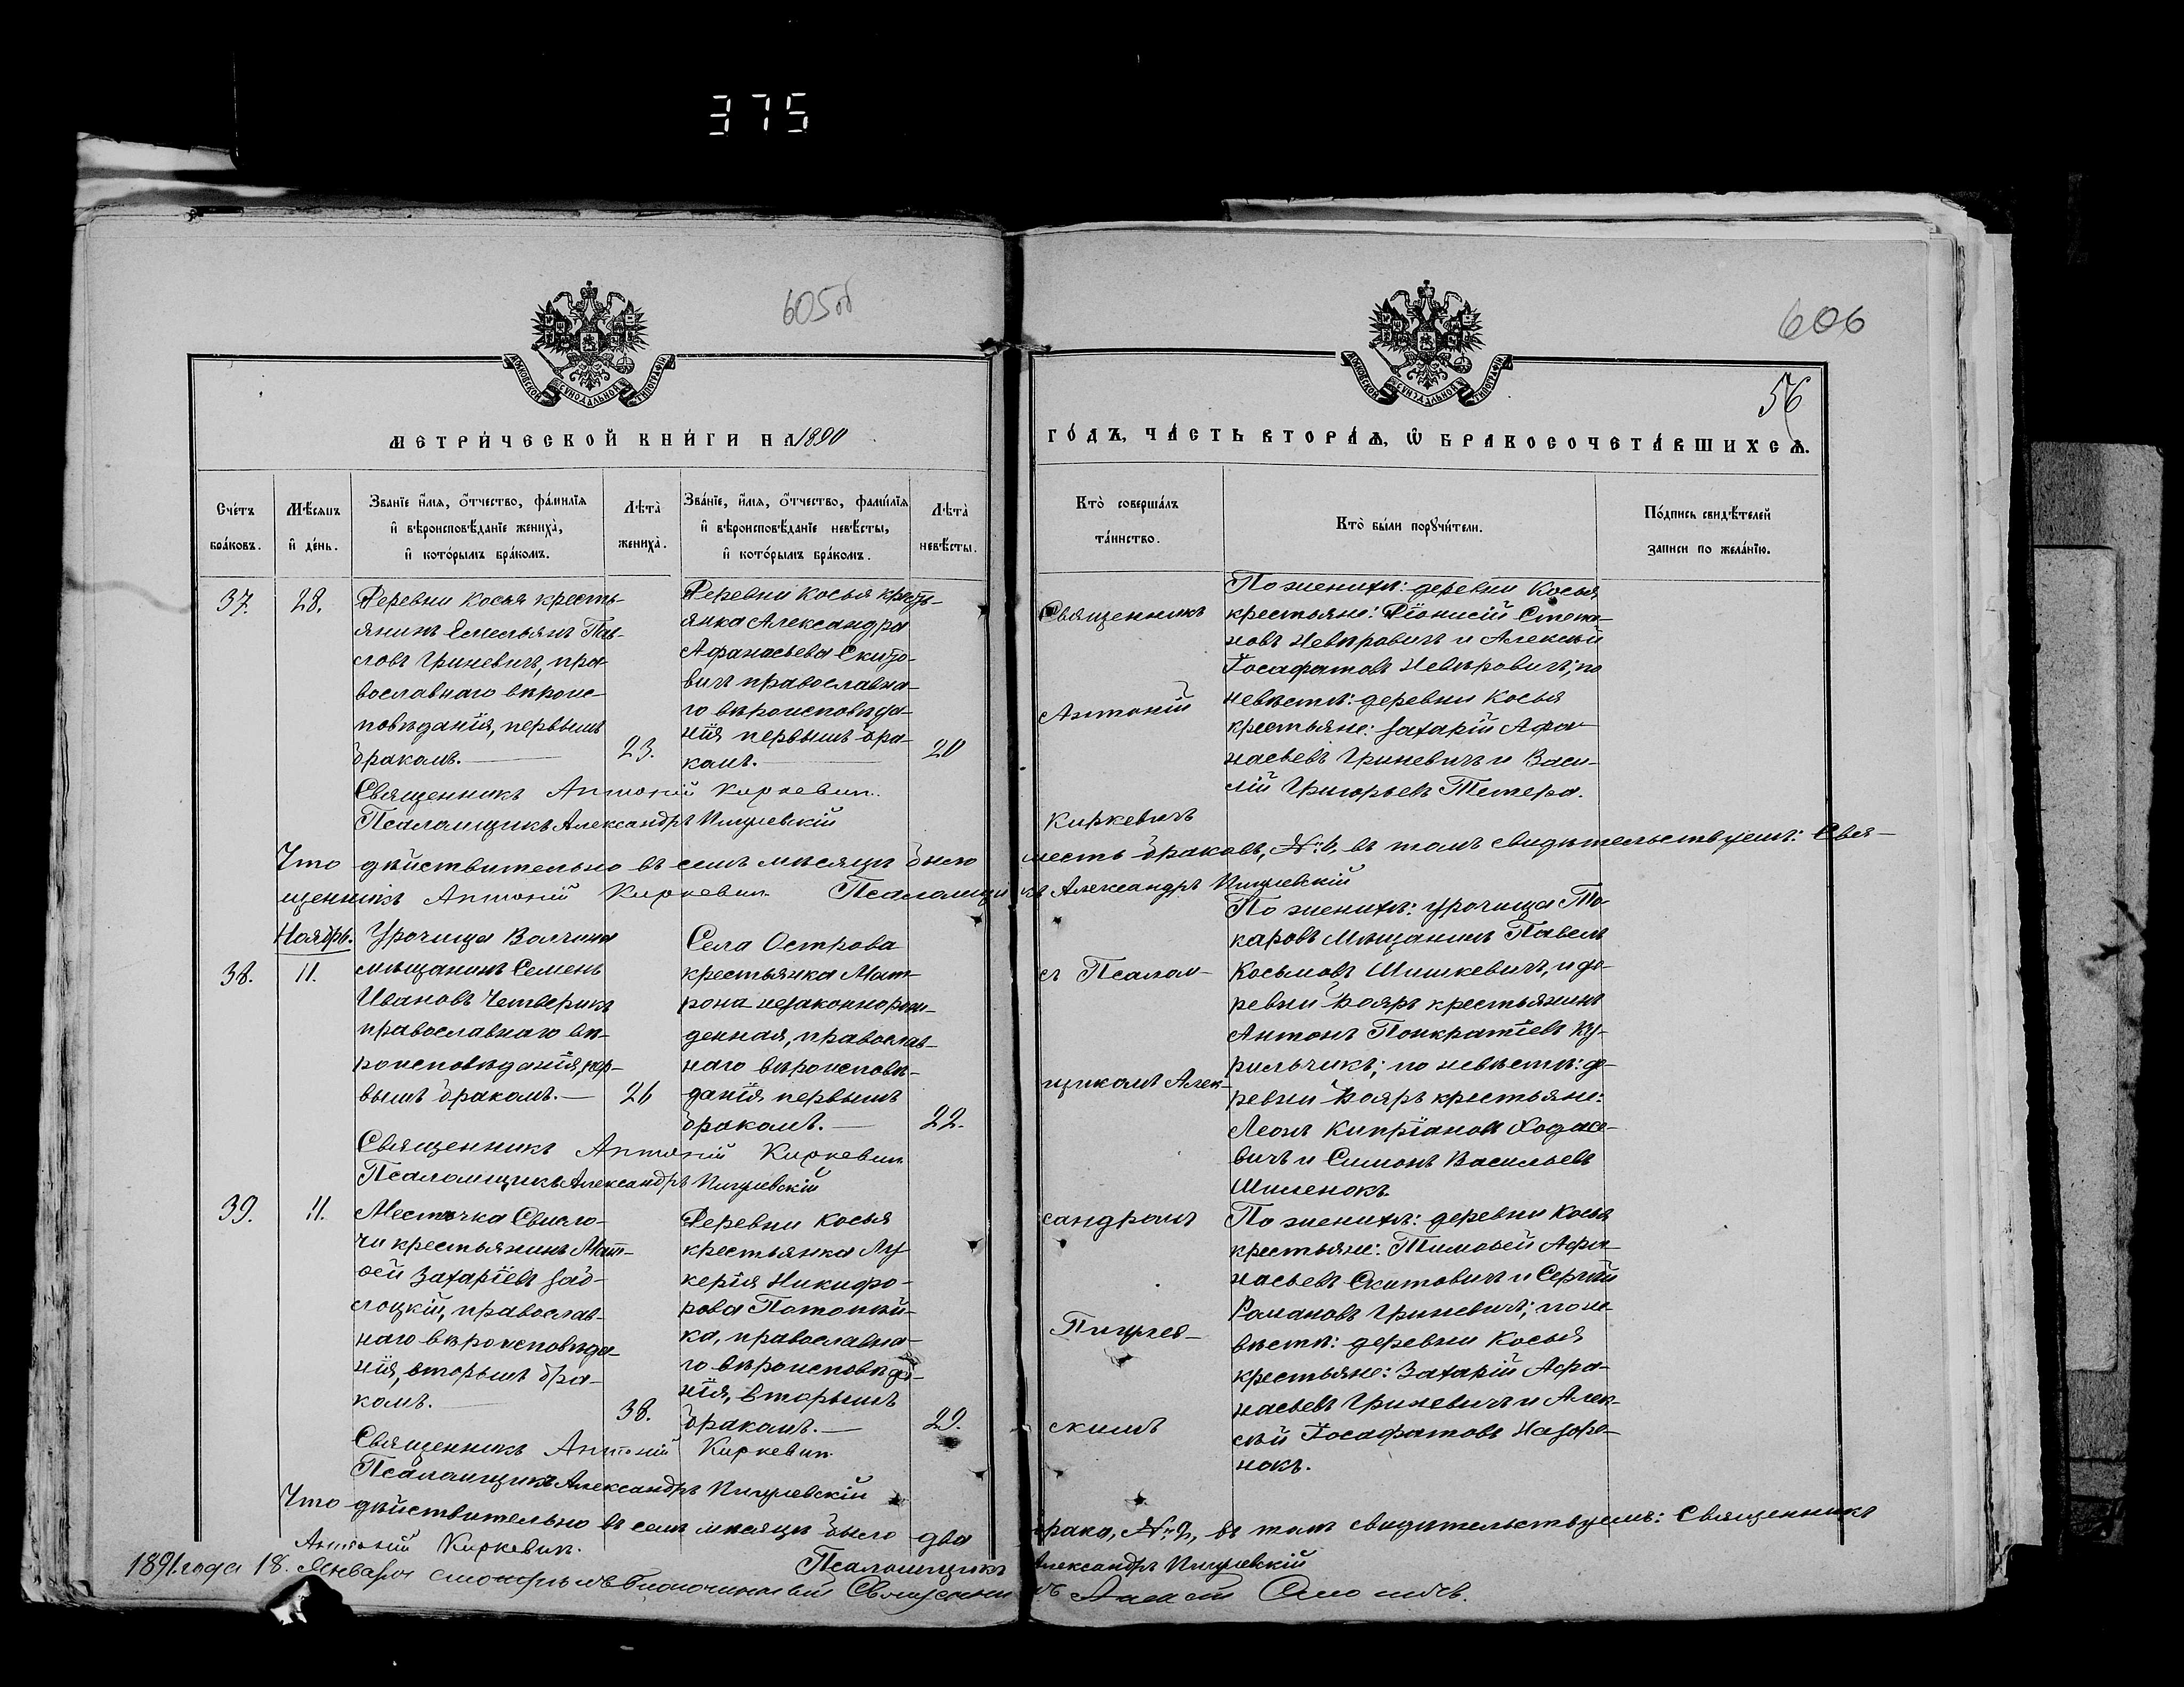 375
605об
606
56
МЕТРИЧЕСКОЙ КНИГИ НА 1890
ГОДЪ, ЧАСТЬ ВТОРАЯ, Ѡ БРАКОСОЧЕТАВШИХСЯ.
Счетъ браковъ.
Мѣсяцъ и день.
Званіе имя, отчество, фамилія
и вѣроисповѣданіе жениха,
и которымъ бракомъ.
Лѣта жениха.
Званіе, имя, отчество, фамилія
и вѣроисповѣданіе невѣсты,
и которымъ бракомъ.
Лѣта невѣсты.
Кто совершалъ
таинство.
Кто были поручители.
Подпись свидѣтелей
записи по желанію.
37.
28.
Деревни Косья кресть-
янинъ Емельянъ Пав-
ловъ Гриневичъ, пра-
вославнаго вѣроис-
повѣданія, первымъ
бракомъ.
23.
Деревни Косья кресть-
янка Александра
Афанасьева Скито-
вичъ православна-
го вѣроисповѣда-
нія первымъ бра-
комъ.
20
Священникъ
Антоній
Киркевичъ
По женихѣ: деревни Косья
крестьяне: Діонисій Степа-
новъ Невѣровичъ и Алексѣй
Іосафатовъ Невѣровичъ; по
невѣстѣ: деревни Косья
крестьяне: Захарій Афа-
насьевъ Гриневичъ и Васи-
лій Григорьевъ Тетера.
Священникъ Антоній Киркевичъ
Псаломщикъ Александръ Пигулевскій
Что действительно въ семъ мѣсяцѣ было шесть браковъ, №: 6, въ томъ свидѣтельствуемъ: Свя-
щенникъ Антоній Киркевичъ Псаломщикъ Александръ Пигулевскій
Ноябрь.
38.
11.
Урочища Волчина
мѣщанинъ Семенъ
Ивановъ Четверикъ
православнаго вѣ-
роисповѣданія, пер-
вымъ бракомъ.
26
Села Острова
крестьянка Мат-
рона незаконнорож-
денная, православ-
наго вѣроисповѣ-
данія первымъ
бракомъ.
22.
съ Псалом-
щикомъ Алек-
По женихѣ: урочища То-
каровъ мѣщанинъ Павелъ
Косьмовъ Шишкевичъ, и де-
ревни Бояръ крестьянинъ
Антонъ Понкратіевъ Ку-
рильчикъ; по невѣстѣ: де-
ревни Бояръ крестьяне:
Леонъ Кипріановъ Ходасе-
вичъ и Симонъ Васильевъ
Шиленокъ.
Священникъ Антоній Киркевичъ
Псаломщикъ Александръ Пигулевскій
39.
11.
Местечка Свисло-
чи крестьянинъ Мат-
ѳей Захаріевъ Заб-
лоцкій, православ-
наго вѣроисповѣда-
нія, вторымъ бра-
комъ.
38.
Деревни Косья
крестьянка Лу-
керія Никифо-
рова Потопѣй-
ка, православна-
го вѣроисповѣда-
нія, вторымъ
бракомъ.
29.
сандромъ
Пигулев-
скимъ
По женихѣ: деревни Косья
крестьяне: Тимоѳей Афа-
насьевъ Скитовичъ и Сергѣй
Романовъ Гриневичъ; по не-
вѣстѣ: деревни Косья
крестьяне: Захарій Афа-
насьевъ Гриневичъ и Алек-
сѣй Іосафатовъ Назаре-
нокъ.
Священникъ Антоній Киркевичъ
Псаломщикъ Александръ Пигулевскій
Что действительно въ семъ мѣсяцѣ было два брака, №: 2, въ томъ свидѣтельствуемъ: Священникъ
Антоній Киркевичъ. Псаломщикъ Александръ Пигулевскій
1891 года 18. Января смотрѣлъ благочинный Священникъ